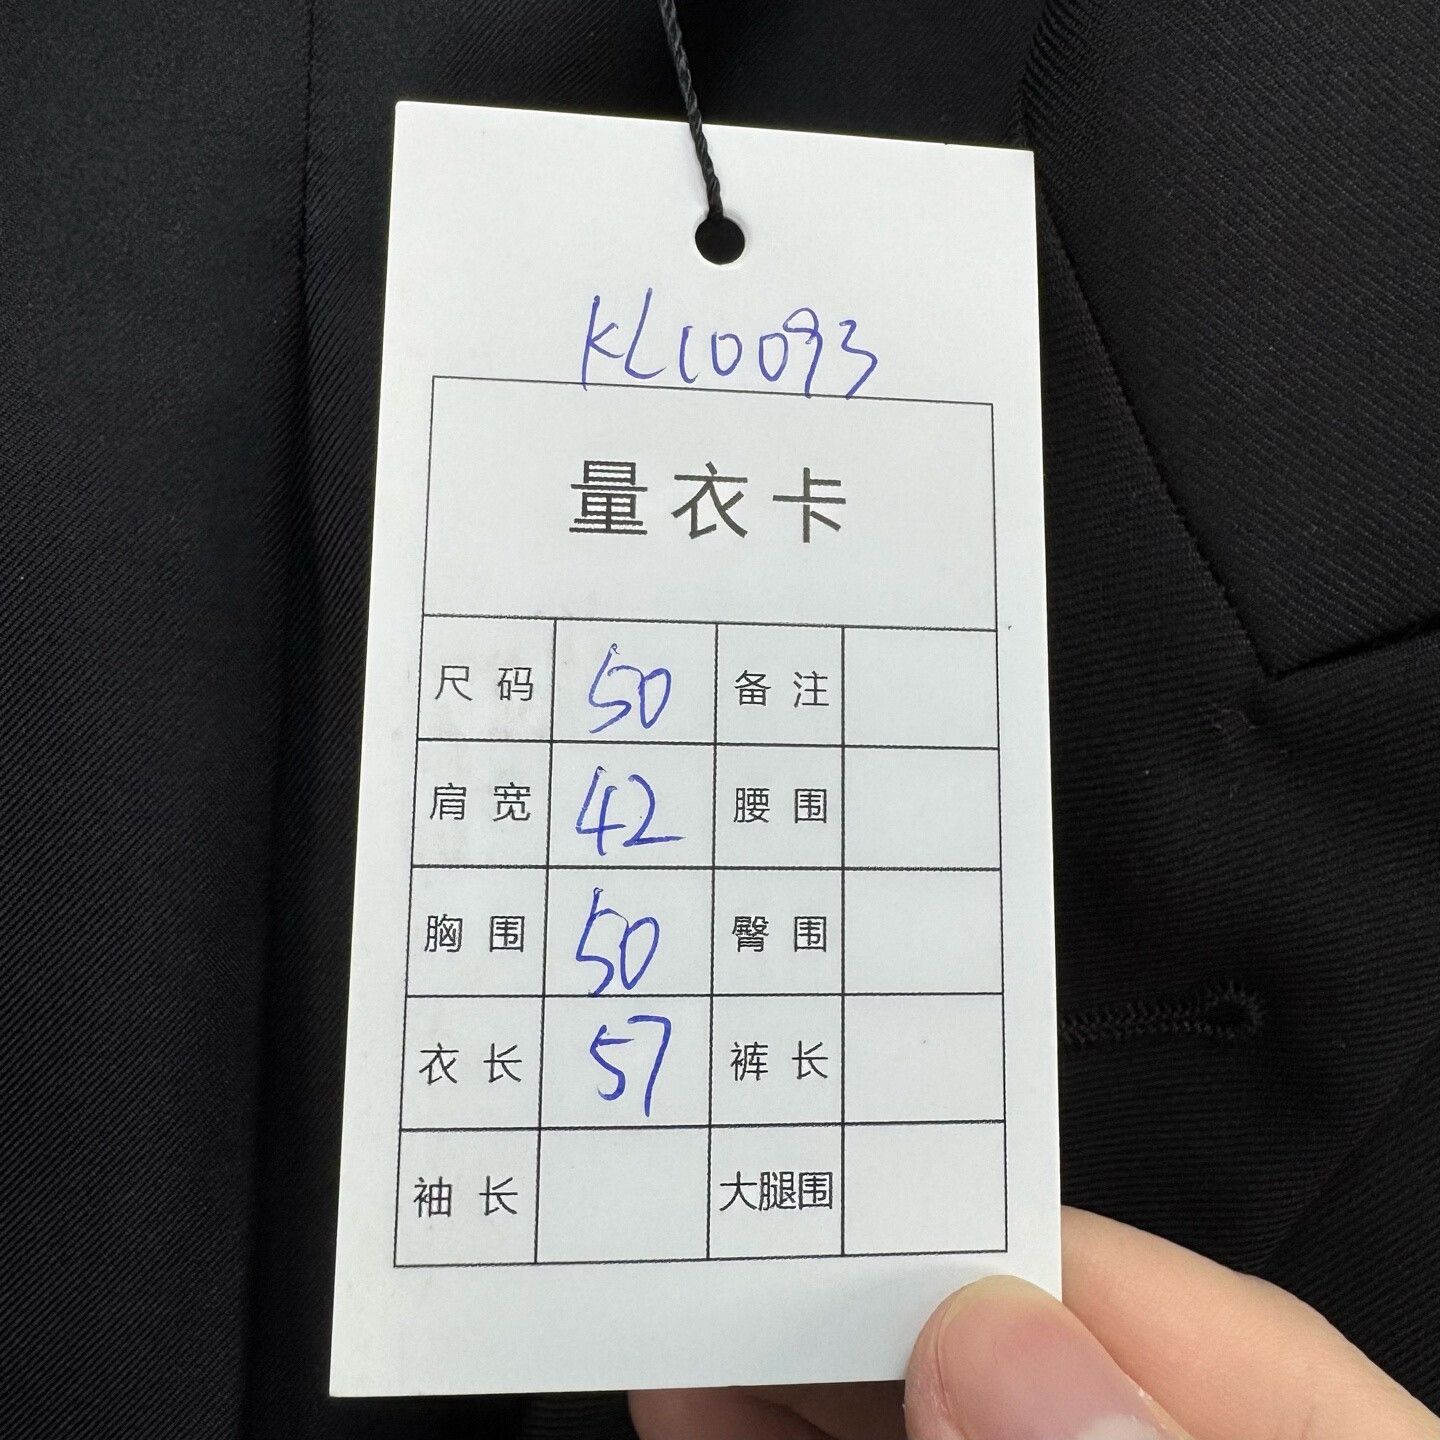 KL10093
量衣卡
尺码 50 备注
肩宽 42 腰围
胸围 50 臀围
衣长 57 裤长
袖长 大腿围